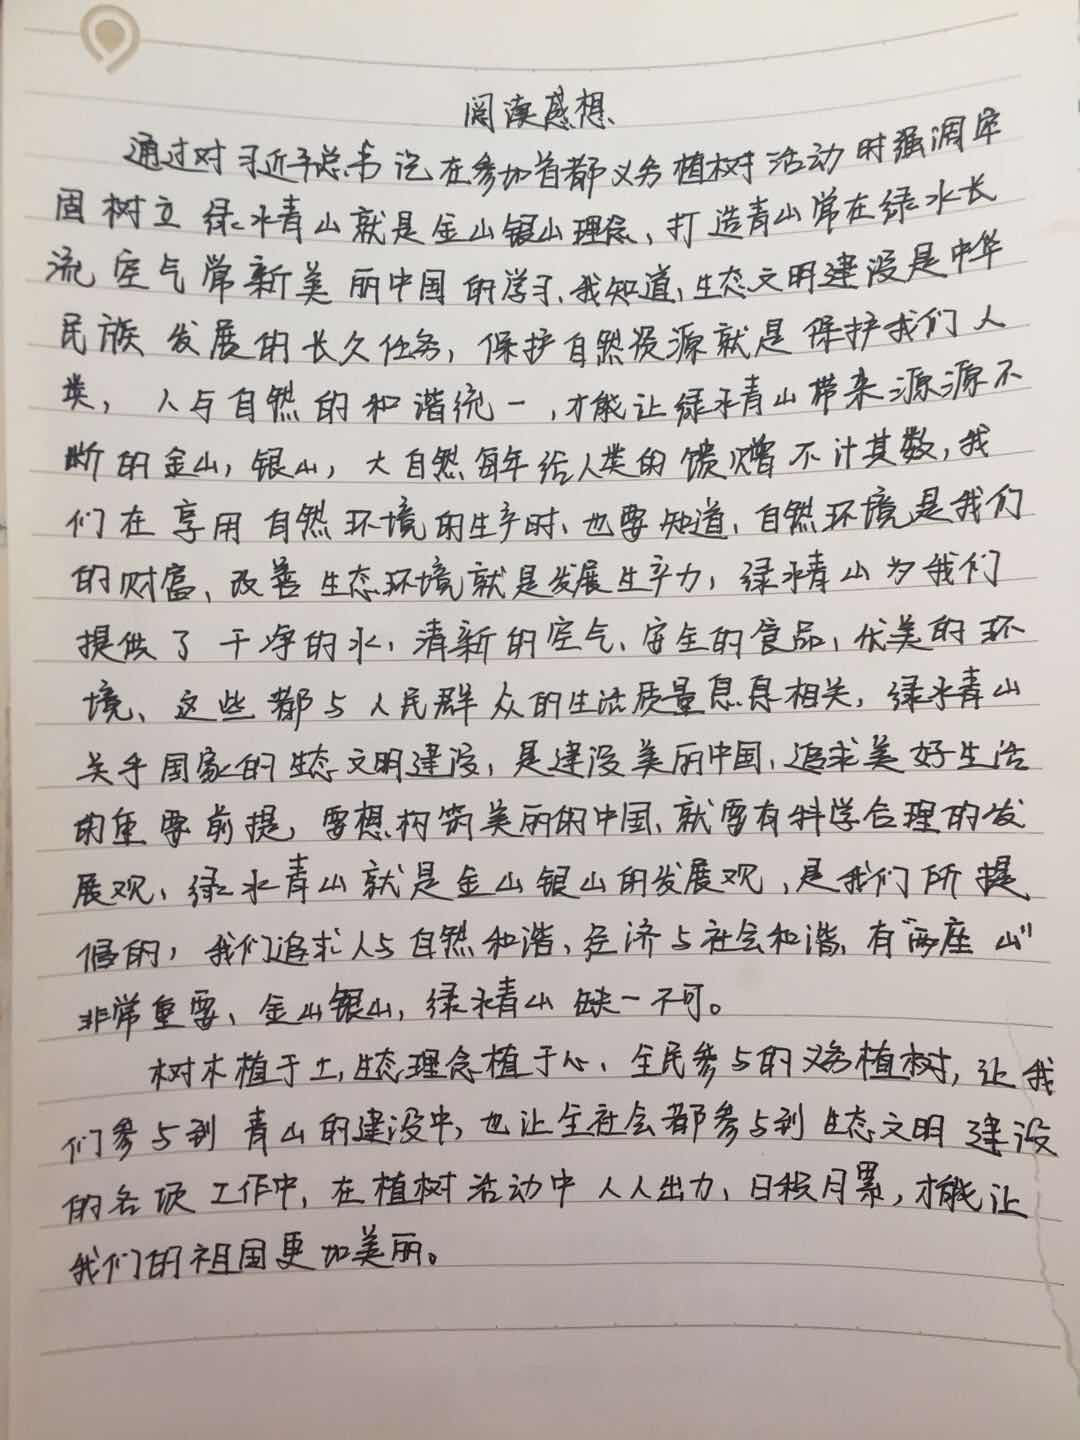 阅读感想
通过对习近平总书记在参加首都义务植树活动时强调牢
固树立绿水青山就是金山银山理念、打造青山常在绿水长
流空气常新美丽中国的学习、我知道,生态文明建设是中华
民族发展的长久任务,保护自然资源就是保护我们人
类,人与自然的和谐统一,才能让绿水青山带来源源不
断的金山,银山,大自然每年给人类的馈赠不计其数,我
们在享用自然环境的生产时、也要知道、自然环境是我们
的财富、改善生态环境就是发展生产力,绿水青山为我们
提供了干净的水、清新的空气、安全的食品,优美的环
境、这些都与人民群众的生活质量息息相关,绿水青山
关乎国家的生态文明建设,是建设美丽中国,追求美好生活
的重要前提,要想构筑美丽的中国、就要有科学合理的发
展观、绿水青山就是金山银山的发展观,是我们所提
倡的,我们追求人与自然和谐、经济与社会和谐,有"两座山"
非常重要、金山银山,绿水青山缺一不可。
树木植于土,生态理念植于心、全民参与的义务植树,让我
们参与到青山的建设中,也让全社会都参与到生态文明建设
的各项工作中,在植树活动中人人出力、日积月累,才能让
我们的祖国更加美丽。